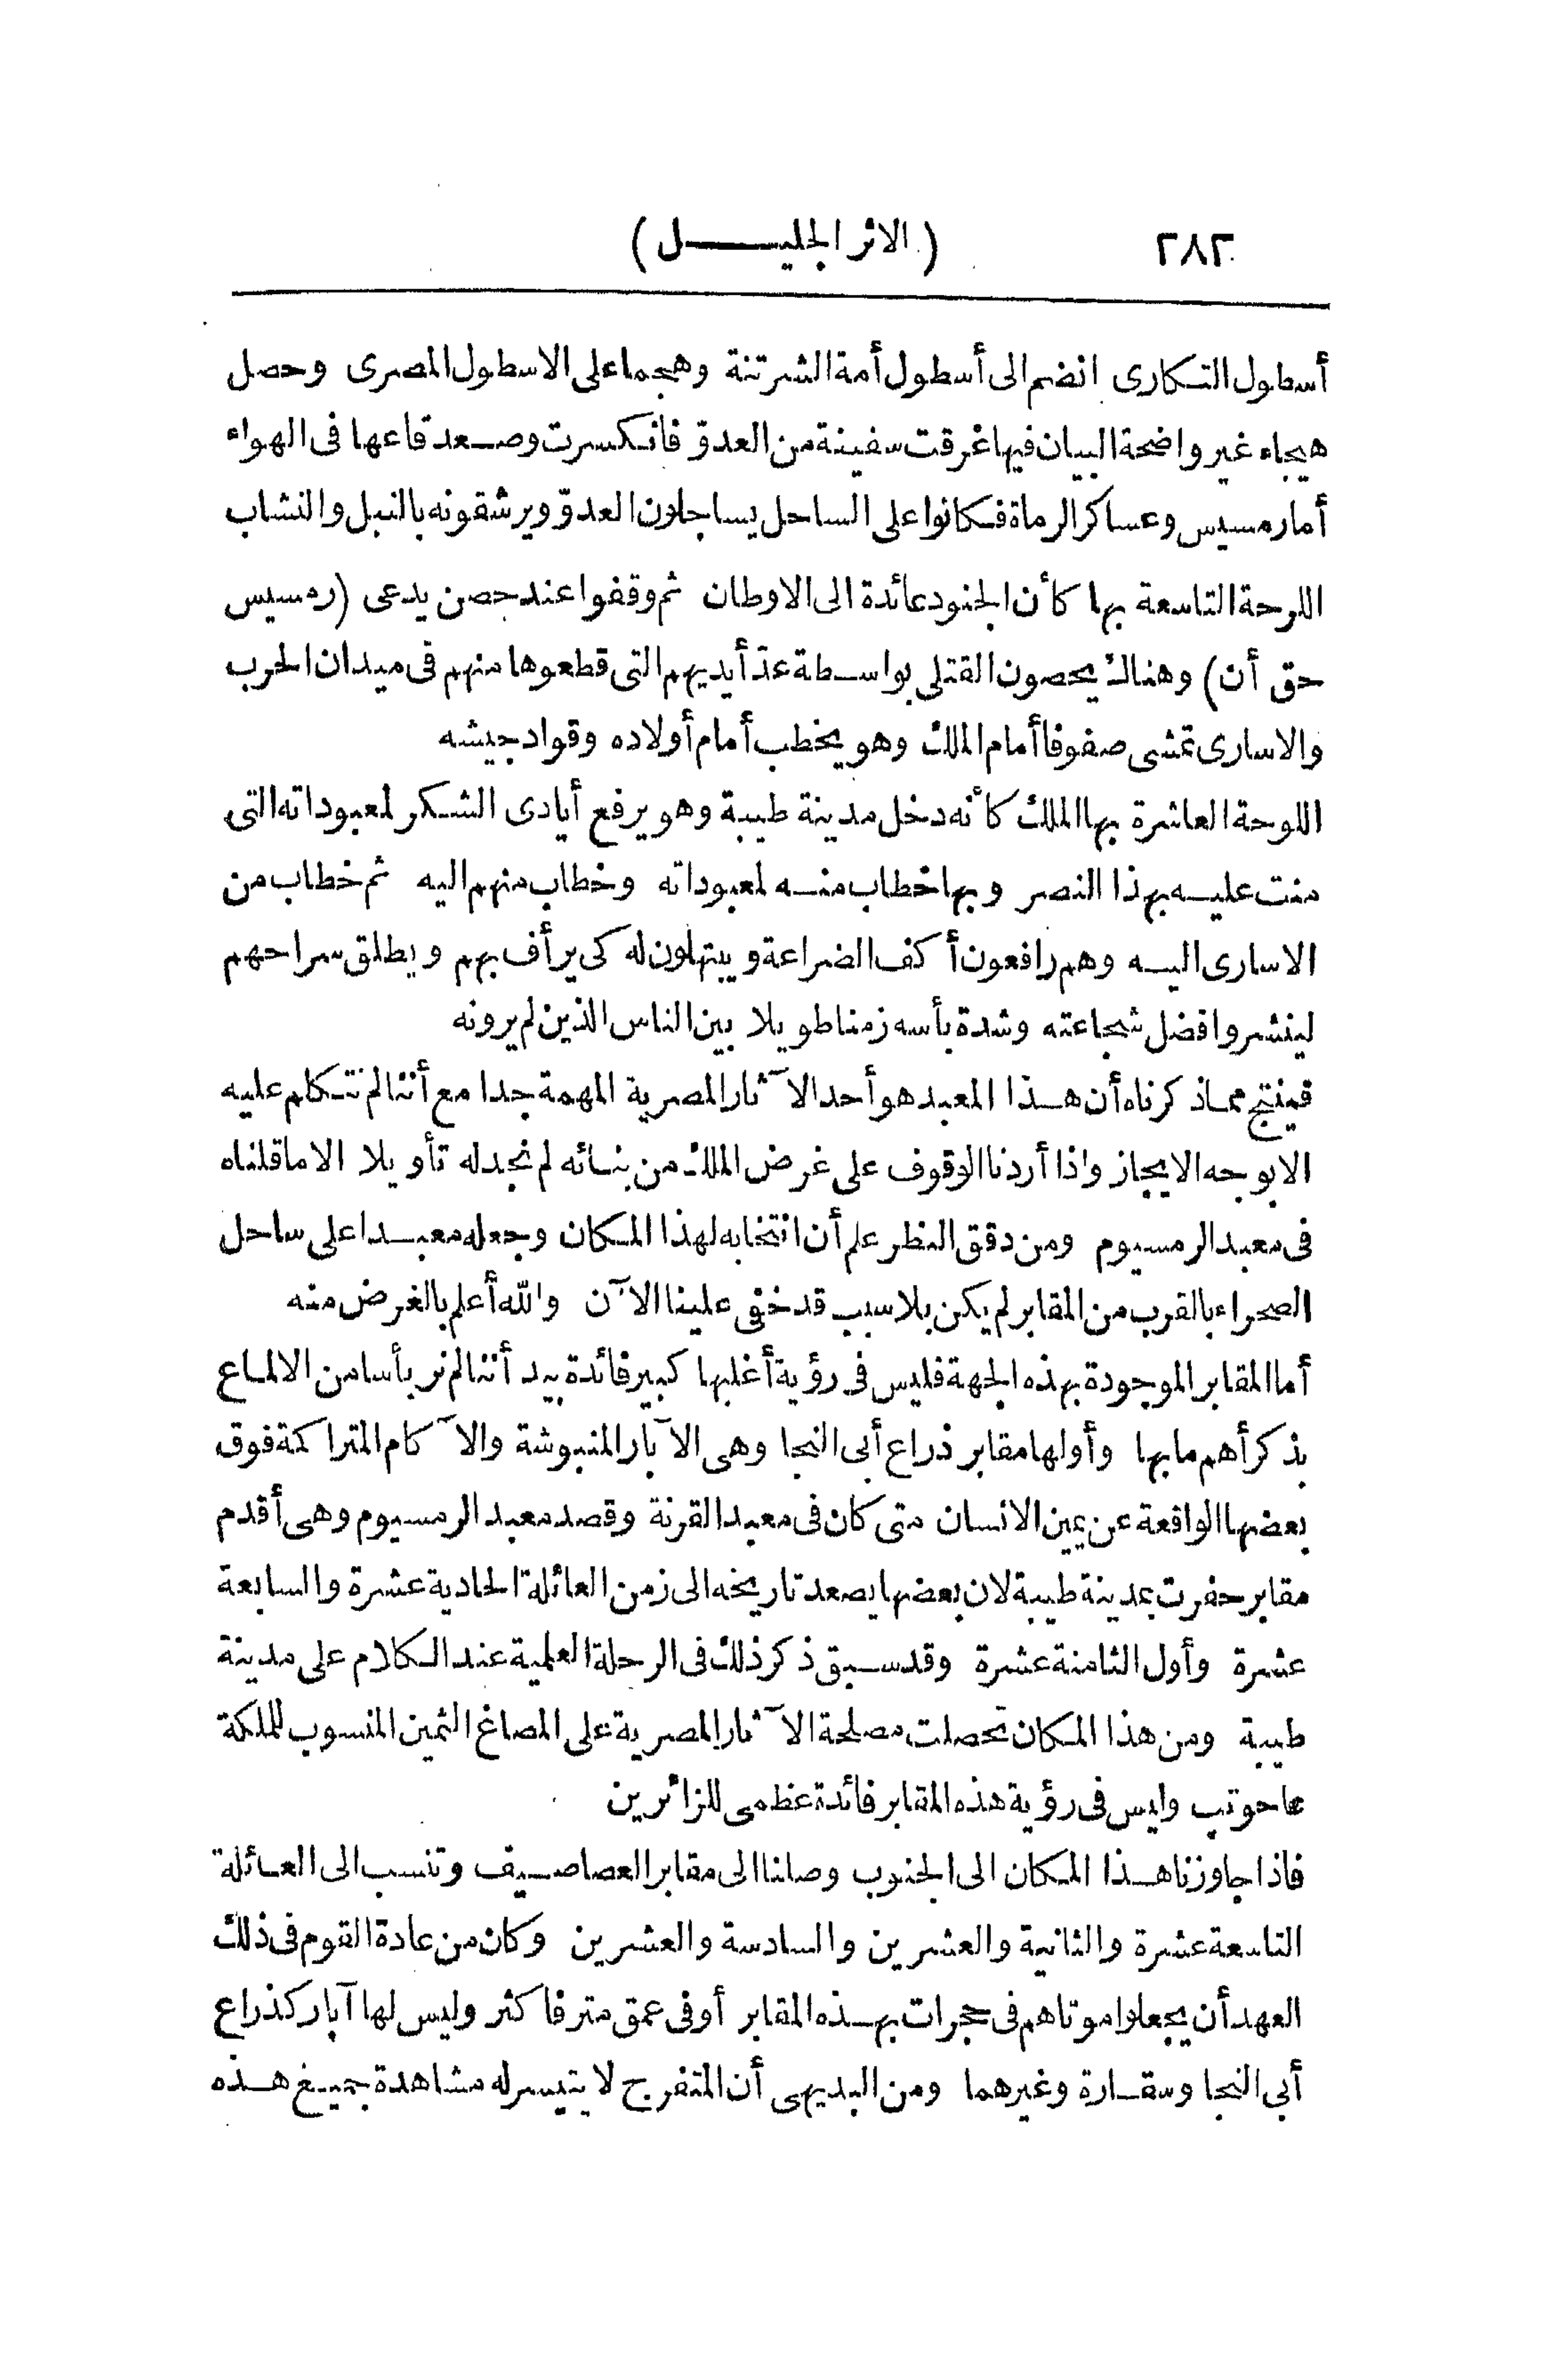 ٢٨٢ (الاثر الجليــل)
أسطول التكارى انضم الى أسطول أمة الشرتنة وهجما على الاسطول المصرى وحصل
هيجاء غير واضحة البيان فيها غرقت سفينة من العدوّ فانكسرت وصعد قاعها فى الهواء
أما رمسيس وعساكر الرماة فكانوا على الساحل يساجلون العدوّ ويرشقونه بالنبل والنشاب
اللوحة التاسعة بها كأن الجنود عائدة الى الاوطان ثم وقفوا عند حصن يدعى (رمسيس
حق أن) وهناك يحصون القتلى بواسطة عدّ أيديهم التى قطعوها منهم فى ميدان الحرب
والاسارى تمشى صفوفا أمام الملك وهو يخطب أمام أولاده وقواد جيشه
اللوحة العاشرة بها الملك كأنه دخل مدينة طيبة وهو يرفع أيادى الشكر لمعبوداته التى
منت عليه بهذا النصر وبها خطاب منه لمعبوداته وخطاب منهم اليه ثم خطاب من
الاسارى اليه وهم رافعون أكف الضراعة ويبتهلون له كى يرأف بهم ويطلق سراحهم
لينشروا فضل شجاعته وشدة بأسه زمنا طويلا بين الناس الذين لم يرونه
فينتج مما ذكرناه أن هذا المعبد هو أحد الآثار المصرية المهمة جدا مع أننا لم نتكلم عليه
الا بوجه الايجاز واذا أردنا الوقوف على غرض الملك من بنائه لم نجد له تأويلا الا ما قلناه
فى معبد الرمسيوم ومن دقق النظر علم أن انتخابه لهذا المكان وجعله معبدا على ساحل
الصحراء بالقرب من المقابر لم يكن بلا سبب قد خفى علينا الآن والله أعلم بالغرض منه
أما المقابر الموجودة بهذه الجهة فليس فى رؤية أغلبها كبير فائدة بيد أننا لم نر بأسا من الالماع
بذكر أهم ما بها وأولها مقابر ذراع أبى النجا وهى الآبار المنبوشة والآكام المتراكمة فوق
بعضها الواقعة عن يمين الانسان متى كان فى معبد القرنة وقصد معبد الرمسيوم وهى أقدم
مقابر حفرت بمدينة طيبة لان بعضها يصعد تاريخه الى زمن العائلة الحادية عشرة والسابعة
عشرة وأول الثامنة عشرة وقد سبق ذكر ذلك فى الرحلة العلمية عند الكلام على مدينة
طيبة ومن هذا المكان تحصلت مصلحة الآثار المصرية على المصاغ الثمين المنسوب للملكة
عاحوتب وليس فى رؤية هذه المقابر فائدة عظمى للزائرين
فاذا جاوزنا هذا المكان الى الجنوب وصلنا الى مقابر العصاصيف وتنسب الى العائلة
التاسعة عشرة والثانية والعشرين والسادسة والعشرين وكان من عادة القوم فى ذلك
العهد أن يجعلوا موتاهم فى حجرات بهذه المقابر أو فى عمق متر فاكثر وليس لها آبار كذراع
أبى النجا وسقارة وغيرهما ومن البديهى أن المتفرج لا يتيسر له مشاهدة جميع هذه